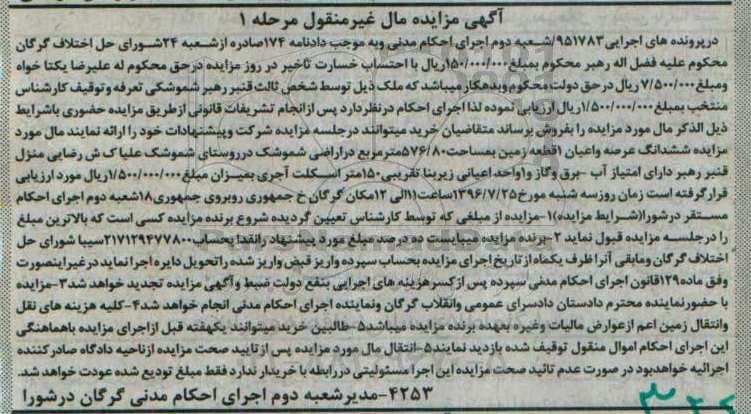 آگهی مزایده مال غیرمنقول مرحله ۱
درپرونده های اجرایی ۹۵۱۷۸۳/شعبه دوم اجرای احکام مدنی وبه موجب دادنامه ۱۷۴صادره ازشعبه ۲۴شورای حل اختلاف گرگان
محکوم علیه فضل اله رهبر محکوم بمبلغ۱۵۰/۰۰۰/۰۰۰ریال با احتساب خسارت تاخیر در روز مزایده درحق محکوم له علیرضا یکتا خواه
ومبلغ۷/۵۰۰/۰۰۰ریال درحق دولت محکوم وبدهکار میباشد که ملک ذیل توسط شخص ثالث قنبر رهبر شموشکی تعرفه وتوقیف کارشناس
منتخب بمبلغ۱/۵۰۰/۰۰۰/۰۰۰ریال ارزیابی نموده لذا اجرای احکام درنظر دارد پس ازانجام تشریفات قانونی ازطریق مزایده حضوری باشرایط
ذیل الذکر مال مورد مزایده را بفروش برساند متقاضیان خرید میتوانند درجلسه مزایده شرکت وپیشنهادات خود را ارائه نمایند مال مورد
مزایده ششدانگ عرصه واعیان ۱قطعه زمین بمساحت۵۷۶/۸۰مترمربع دراراضی شموشک درروستای شموشک علیا ک ش رضایی منزل
قنبر رهبر دارای امتیاز آب -برق وگاز و۱واحد اعیانی زیربنا تقریبی ۱۵۰متر اسکلت آجری بمیزان مبلغ ۱/۵۰۰/۰۰۰/۰۰۰ریال مورد ارزیابی
قرارگرفته است زمان روزسه شنبه مورخ۱۳۹۶/۷/۲۵ساعت۱۱الی ۱۲مکان گرگان خ جمهوری روبروی جمهوری۱۸شعبه دوم اجرای احکام
مستقر درشورا(شرایط مزایده)۱-مزایده از مبلغی که توسط کارشناس تعیین گردیده شروع برنده مزایده کسی است که بالاترین مبلغ
را درجلسه مزایده قبول نماید ۲-برنده مزایده میبایست ده درصد مبلغ مورد پیشنهاد رانقدا بحساب۲۱۷۱۲۹۴۷۷۸۰۰سیبا شورای حل
اختلاف گرگان ومابقی آنرا ظرف یکماه از تاریخ اجرای مزایده بحساب سپرده واریز قبض واریز شده راتحویل دایره اجرا نماید درغیراینصورت
وفق ماده۱۲۹قانون اجرای احکام مدنی سپرده پس ازکسرهزینه های اجرایی بنفع دولت ضبط وآگهی مزایده تجدید خواهد شد۳-مزایده
با حضورنماینده محترم دادستان دادسرای عمومی وانقلاب گرگان ونماینده اجرای احکام مدنی انجام خواهد شد۴-کلیه هزینه های نقل
وانتقال زمین اعم ازعوارض مالیات وغیره بعهده برنده مزایده میباشد۵-طالبین خرید میتوانند یکهفته قبل ازاجرای مزایده باهماهنگی
این اجرای احکام اموال منقول توقیف شده بازدید نمایند۵-انتقال مال مورد مزایده پس ازتایید صحت مزایده ازناحیه دادگاه صادرکننده
اجرائیه خواهدبود در صورت عدم تائید صحت مزایده این اجرا مسئولیتی دررابطه با خریدار ندارد فقط مبلغ تودیع شده عودت خواهد شد.
۴۲۵۳-مدیرشعبه دوم اجرای احکام مدنی گرگان درشورا